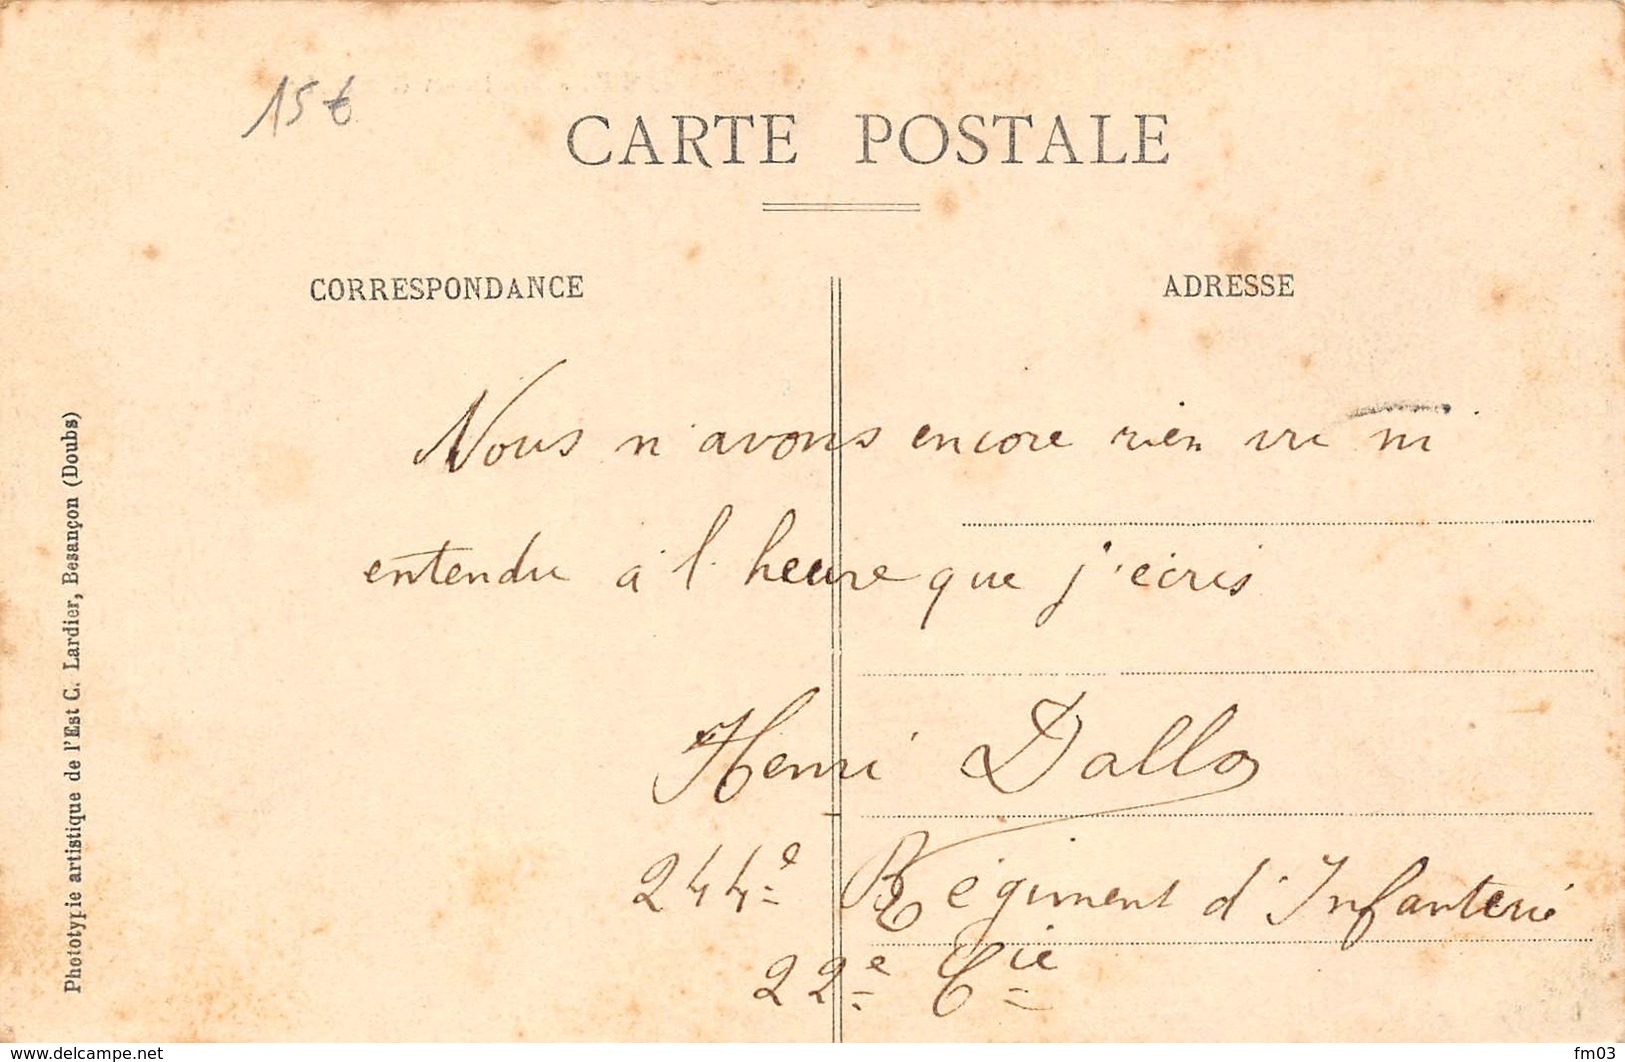 15€
CARTE POSTALE
CORRESPONDANCE
ADRESSE
Nous n'avons encore rien vu ni
entendu à l'heure que j'écris
Henri Dallo
244e Régiment d'Infanterie
22e Cie
Phototypie artistique de l'Est C. Lardier, Besançon (Doubs)
www.delcampe.net
fm03